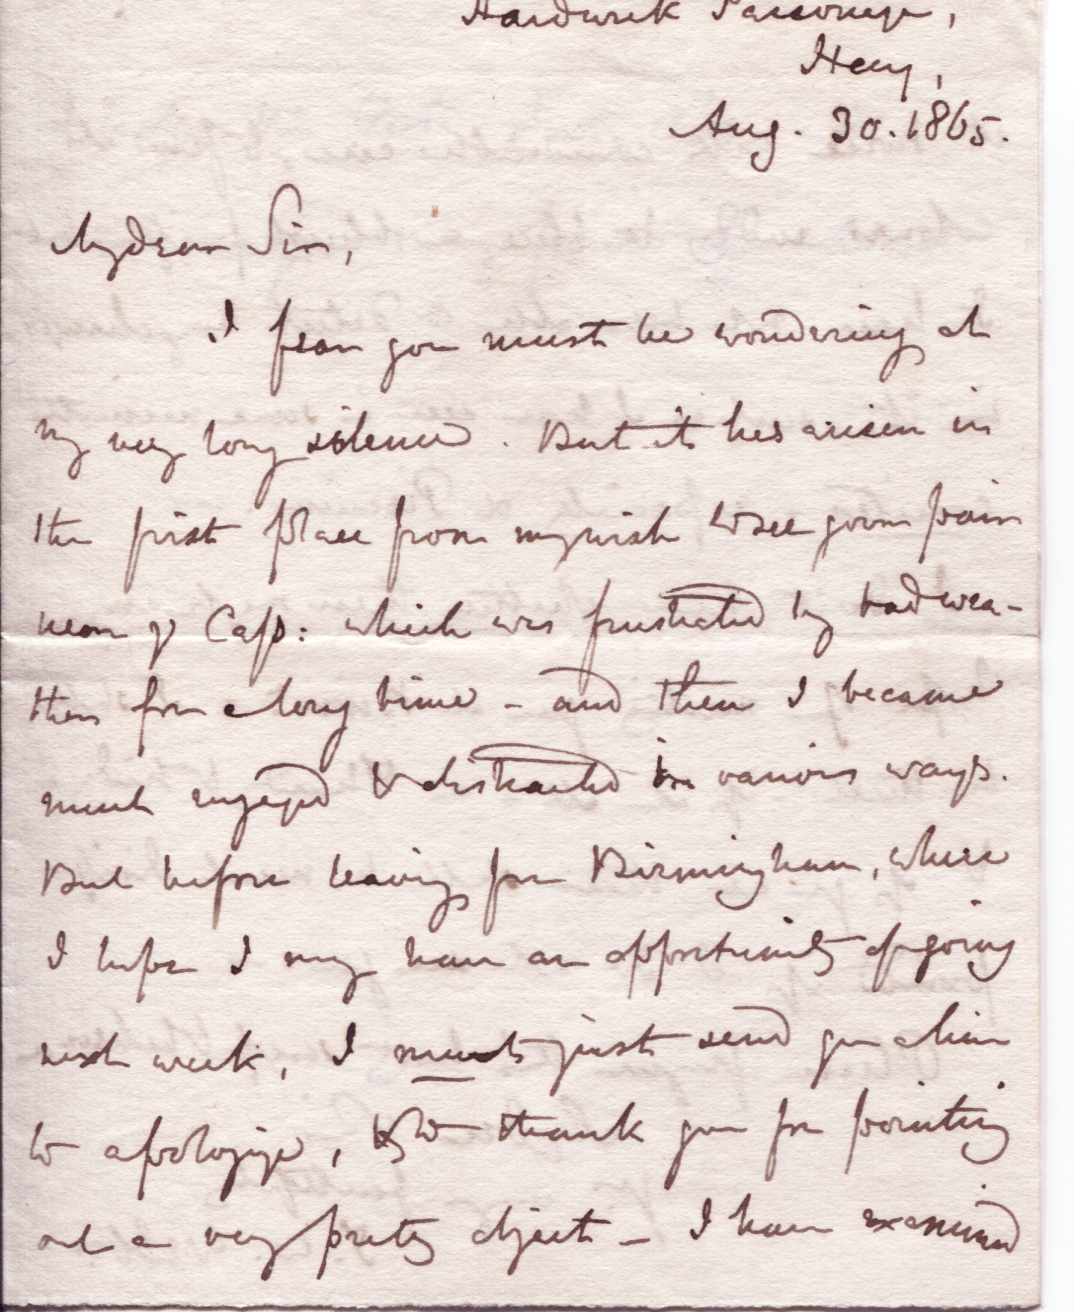 Hardwick Parsonage,
Hay,
Aug. 30. 1865.
My dear Sir,
I fear you must be wondering at
my very long silence. But it has arisen in
the first place from my wish to see your pair
near γ Cass: which was frustrated by bad wea-
ther for a long time - and then I became
much engaged & distracted in various ways.
But before leaving for Birmingham, where
I hope I may have an opportunity of going
next week, I must just send you a line
to apologize, & to thank you for pointing
out a very pretty object - I have examined